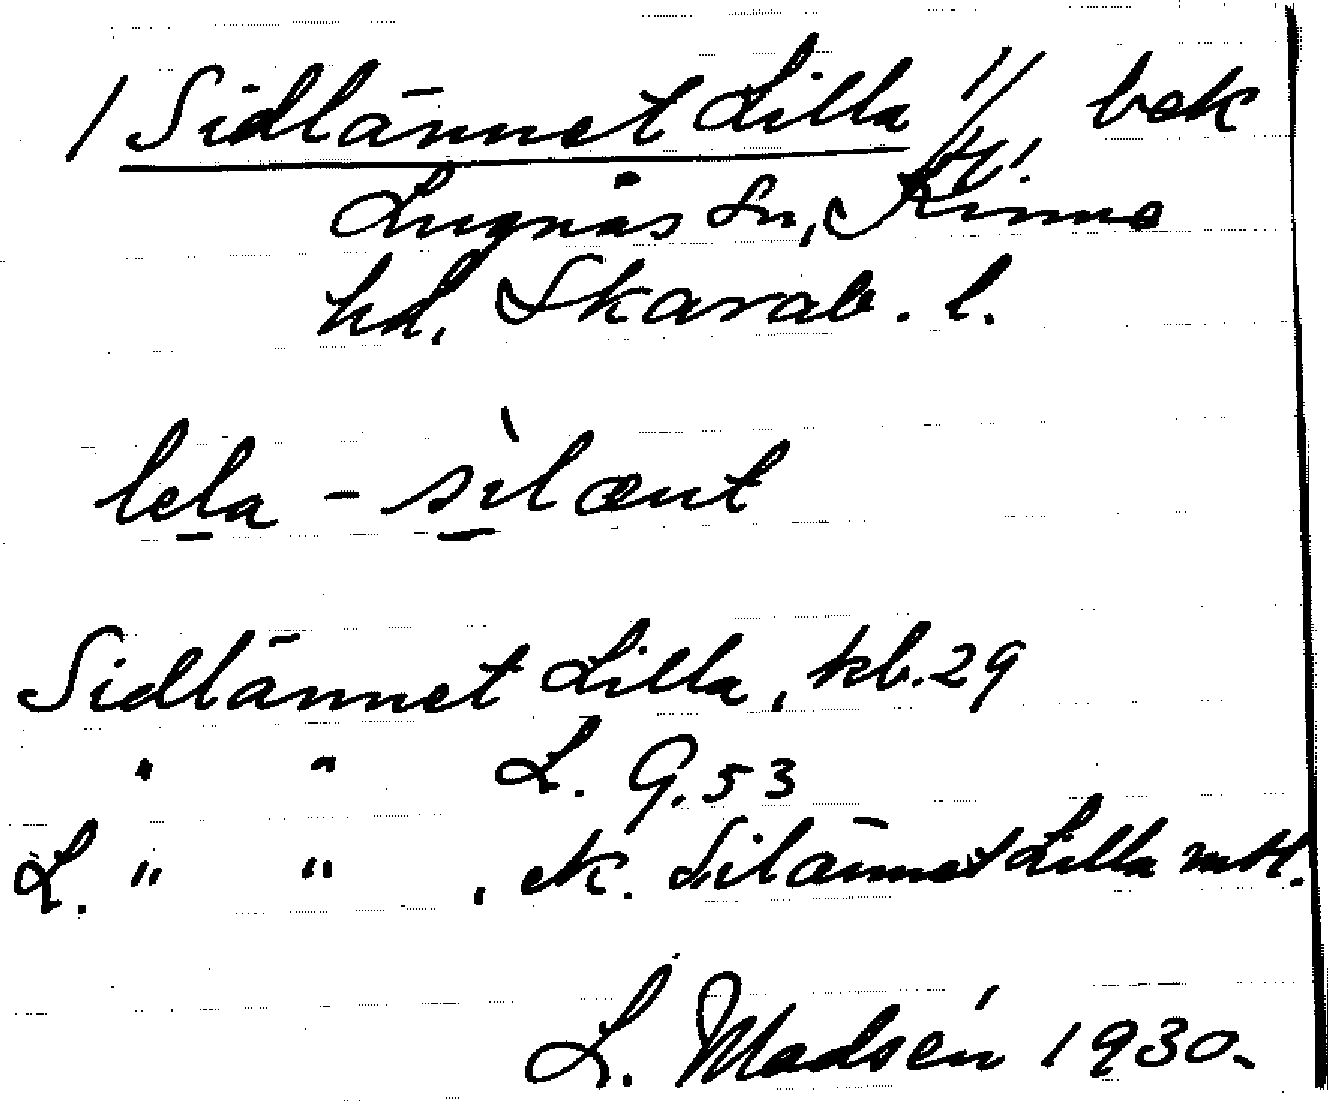 / Sidlännet Lilla // bek
Lugnås sn, Kinne
hd, Skarab. l.
lela - sìlænt
Sidlännet Lilla, kb. 29
" " L. G. 53
L. " " , ek. Silännet Lilla mtl.
L. Madsén 1930.